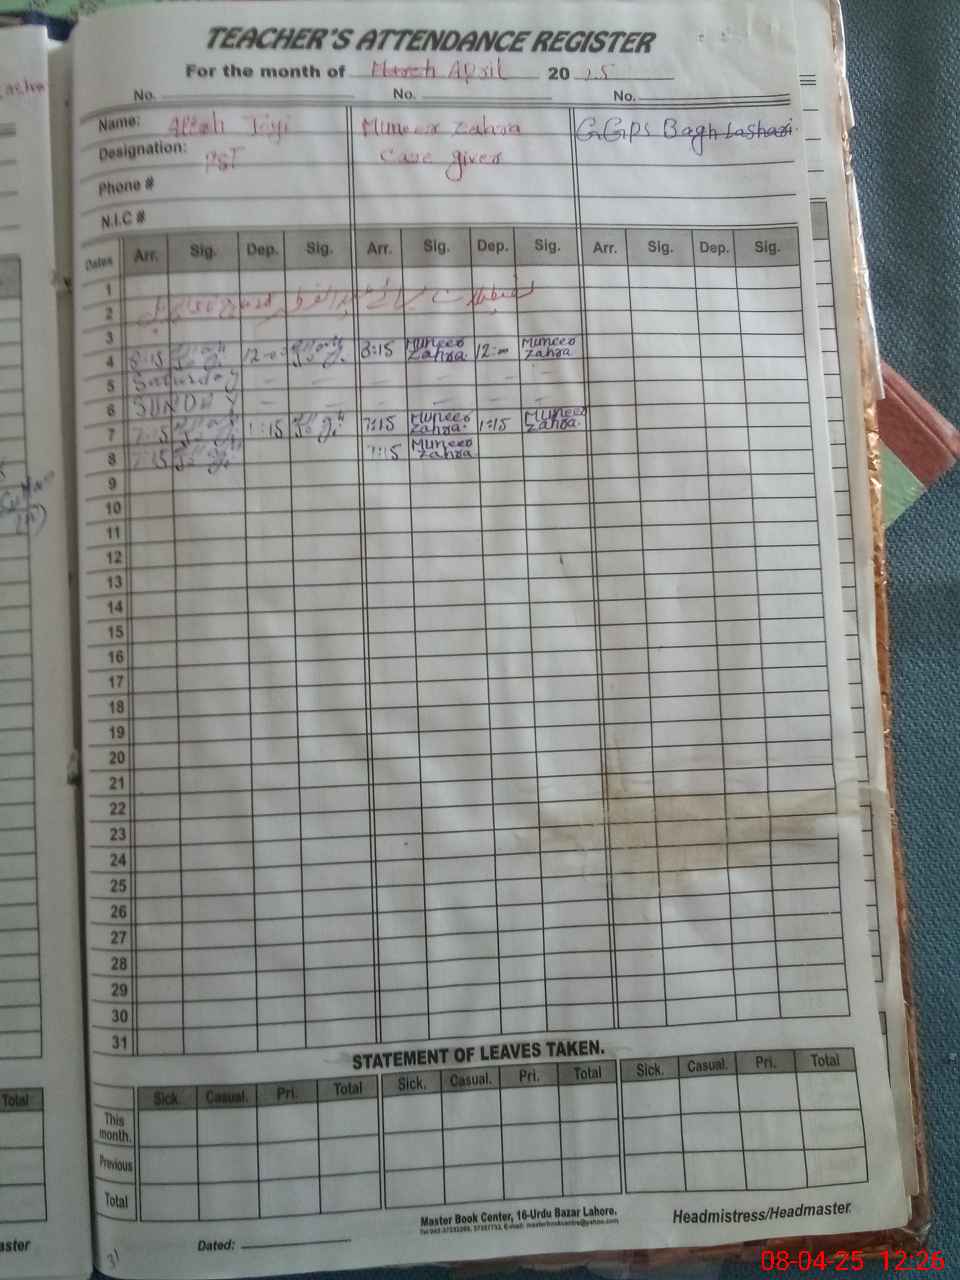 TEACHER'S ATTENDANCE REGISTER
For the month of March April 20
No. No. No.
Name: Muneer Zahra GGPS Bagh Lashari
Designation: PST Care giver
Phone #
N.I.C #
Dates Arr. Sig. Dep. Sig. Arr. Sig. Dep. Sig. Arr. Sig. Dep. Sig.
1
2
3
4 8:15 12:00 8:15 Muneer Zahra 12:00 Muneer Zahra
5 Saturday – – – – – –
6 SUNDAY – – – – – –
7 7:15 1:15 7:15 Muneer Zahra 1:15 Muneer Zahra
8 7:15 7:15 Muneer Zahra
9
10
11
12
13
14
15
16
17
18
19
20
21
22
23
24
25
26
27
28
29
30
31
STATEMENT OF LEAVES TAKEN.
Sick. Casual. Pri. Total Sick. Casual. Pri. Total Sick. Casual. Pri. Total
This month.
Previous
Total
Master Book Center, 16-Urdu Bazar Lahore.
Headmistress/Headmaster.
Dated:
31
Total
aster
08-04-25 12:26